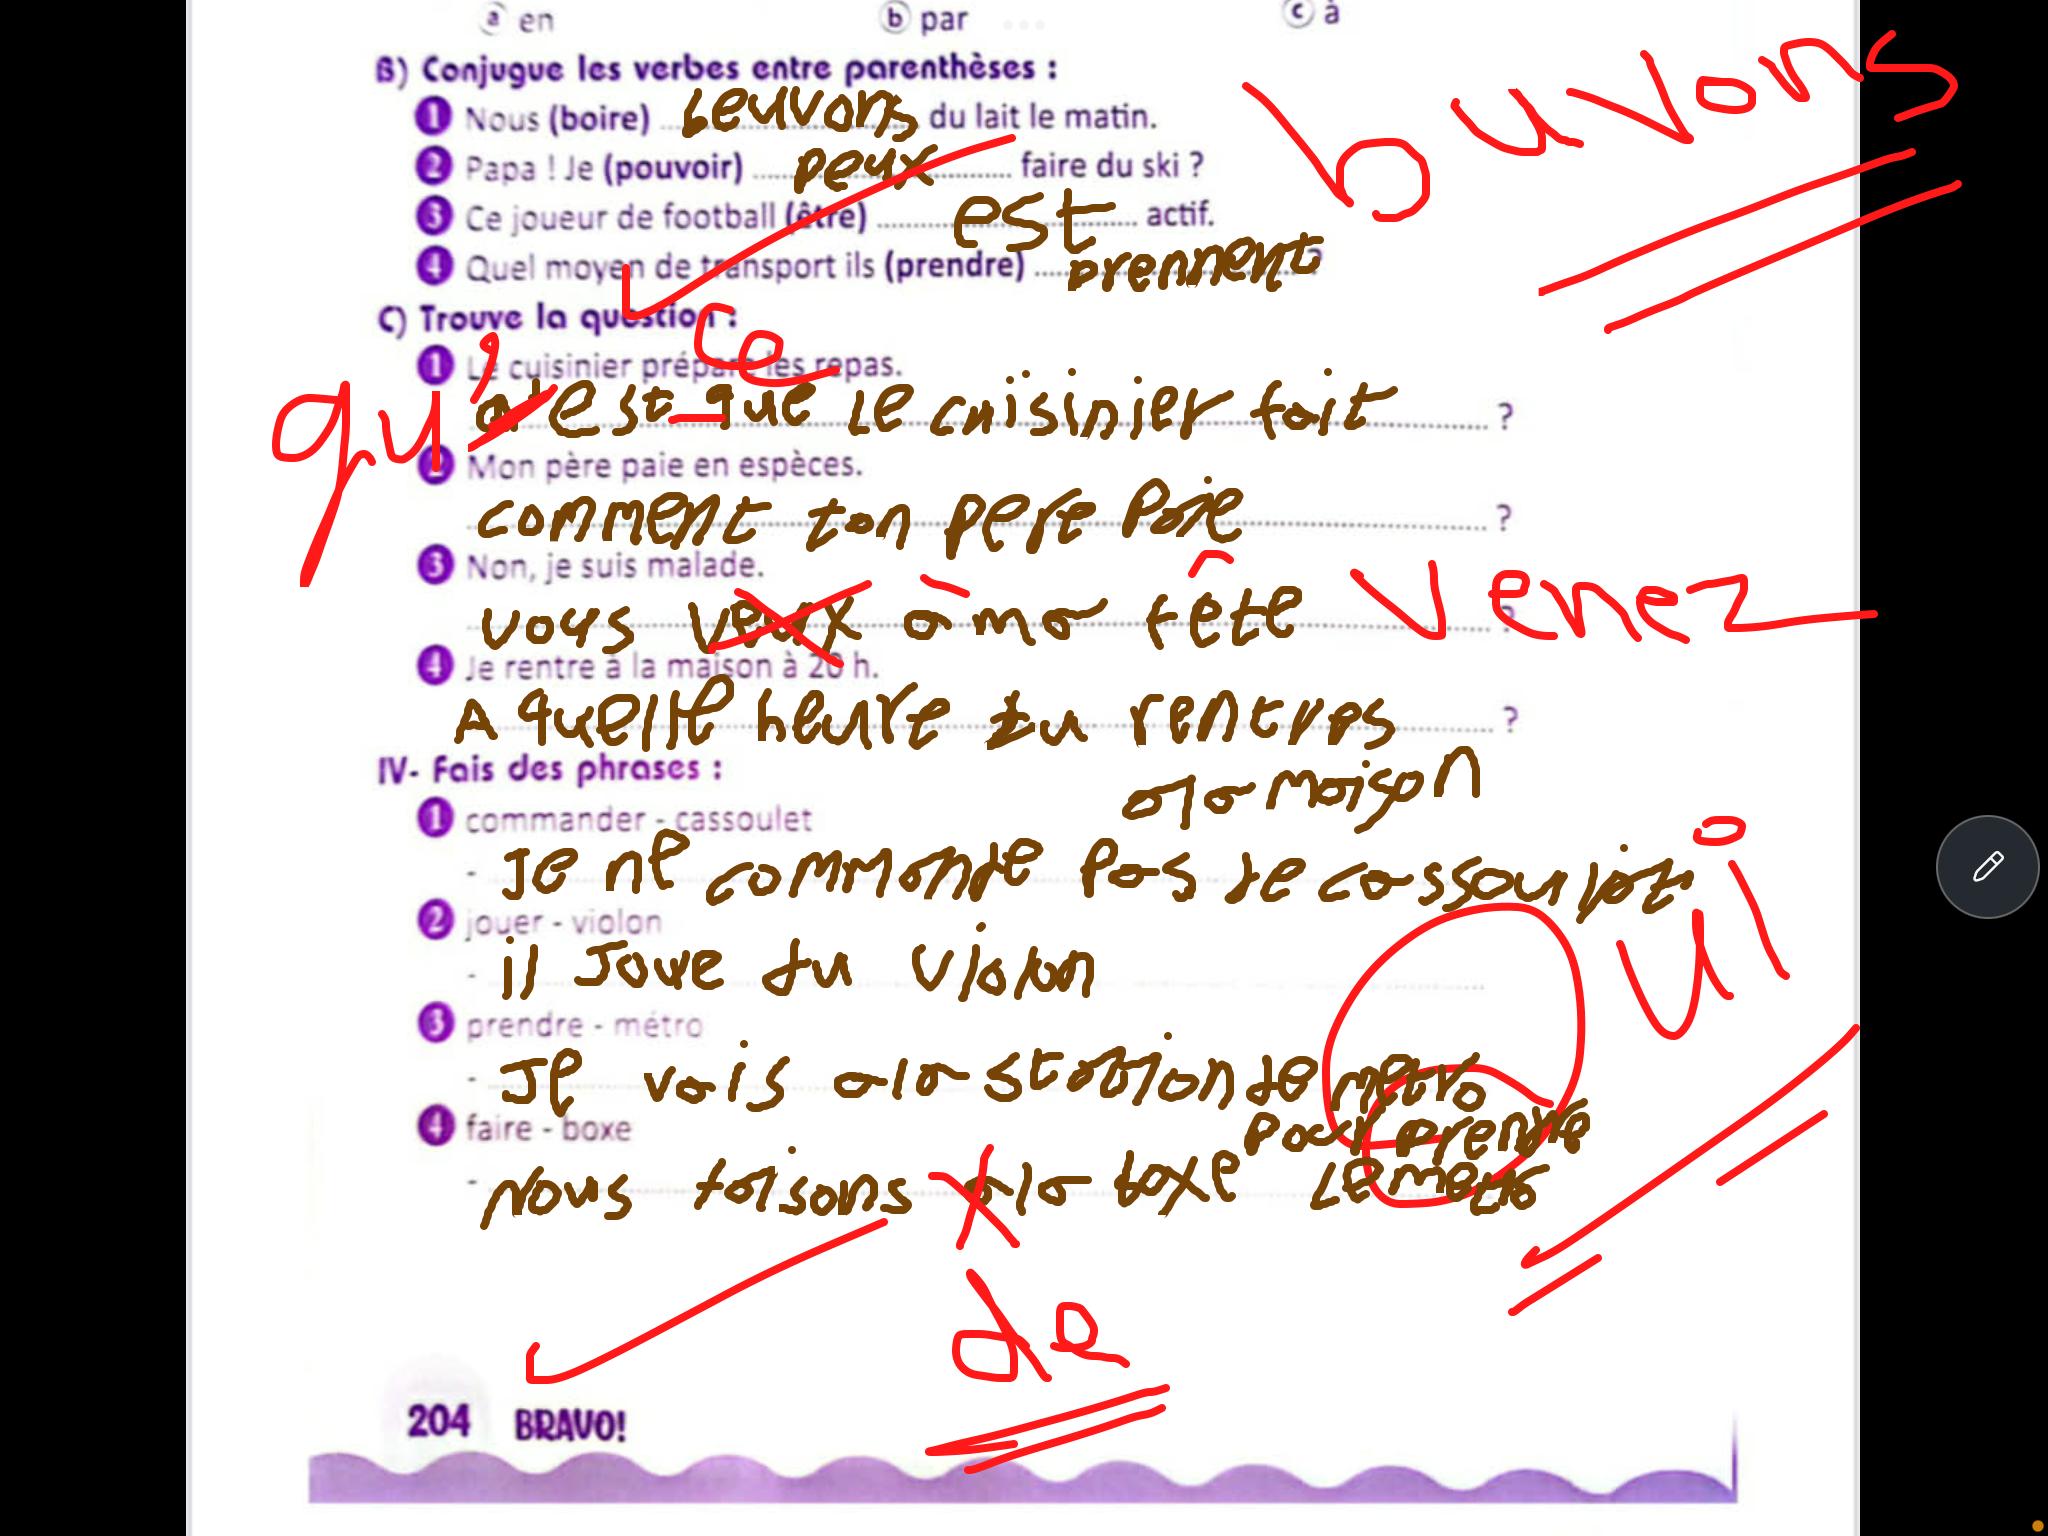 a en b par c à
B) Conjugue les verbes entre parenthèses :
1 Nous (boire) beuvons du lait le matin. buvons
2 Papa ! Je (pouvoir) peux faire du ski ?
3 Ce joueur de football (être) est actif.
4 Quel moyen de transport ils (prendre) prennent ?
C) Trouve la question :
1 Le cuisinier prépare les repas.
qu' ce
est-que le cuisinier fait ?
2 Mon père paie en espèces.
comment ton pere paie ?
3 Non, je suis malade.
vous veux à ma fête venez ?
4 Je rentre à la maison à 20 h.
A quelle heure tu rentres ?
a la maison
IV- Fais des phrases :
1 commander - cassoulet
- Je ne commande pas de cassoulet
ui
2 jouer - violon
- il Joue du violon
3 prendre - métro
- Je vais a la station de metro
pour prendre
le metro
4 faire - boxe
- Nous faisons a la boxe
de
204 BRAVO!